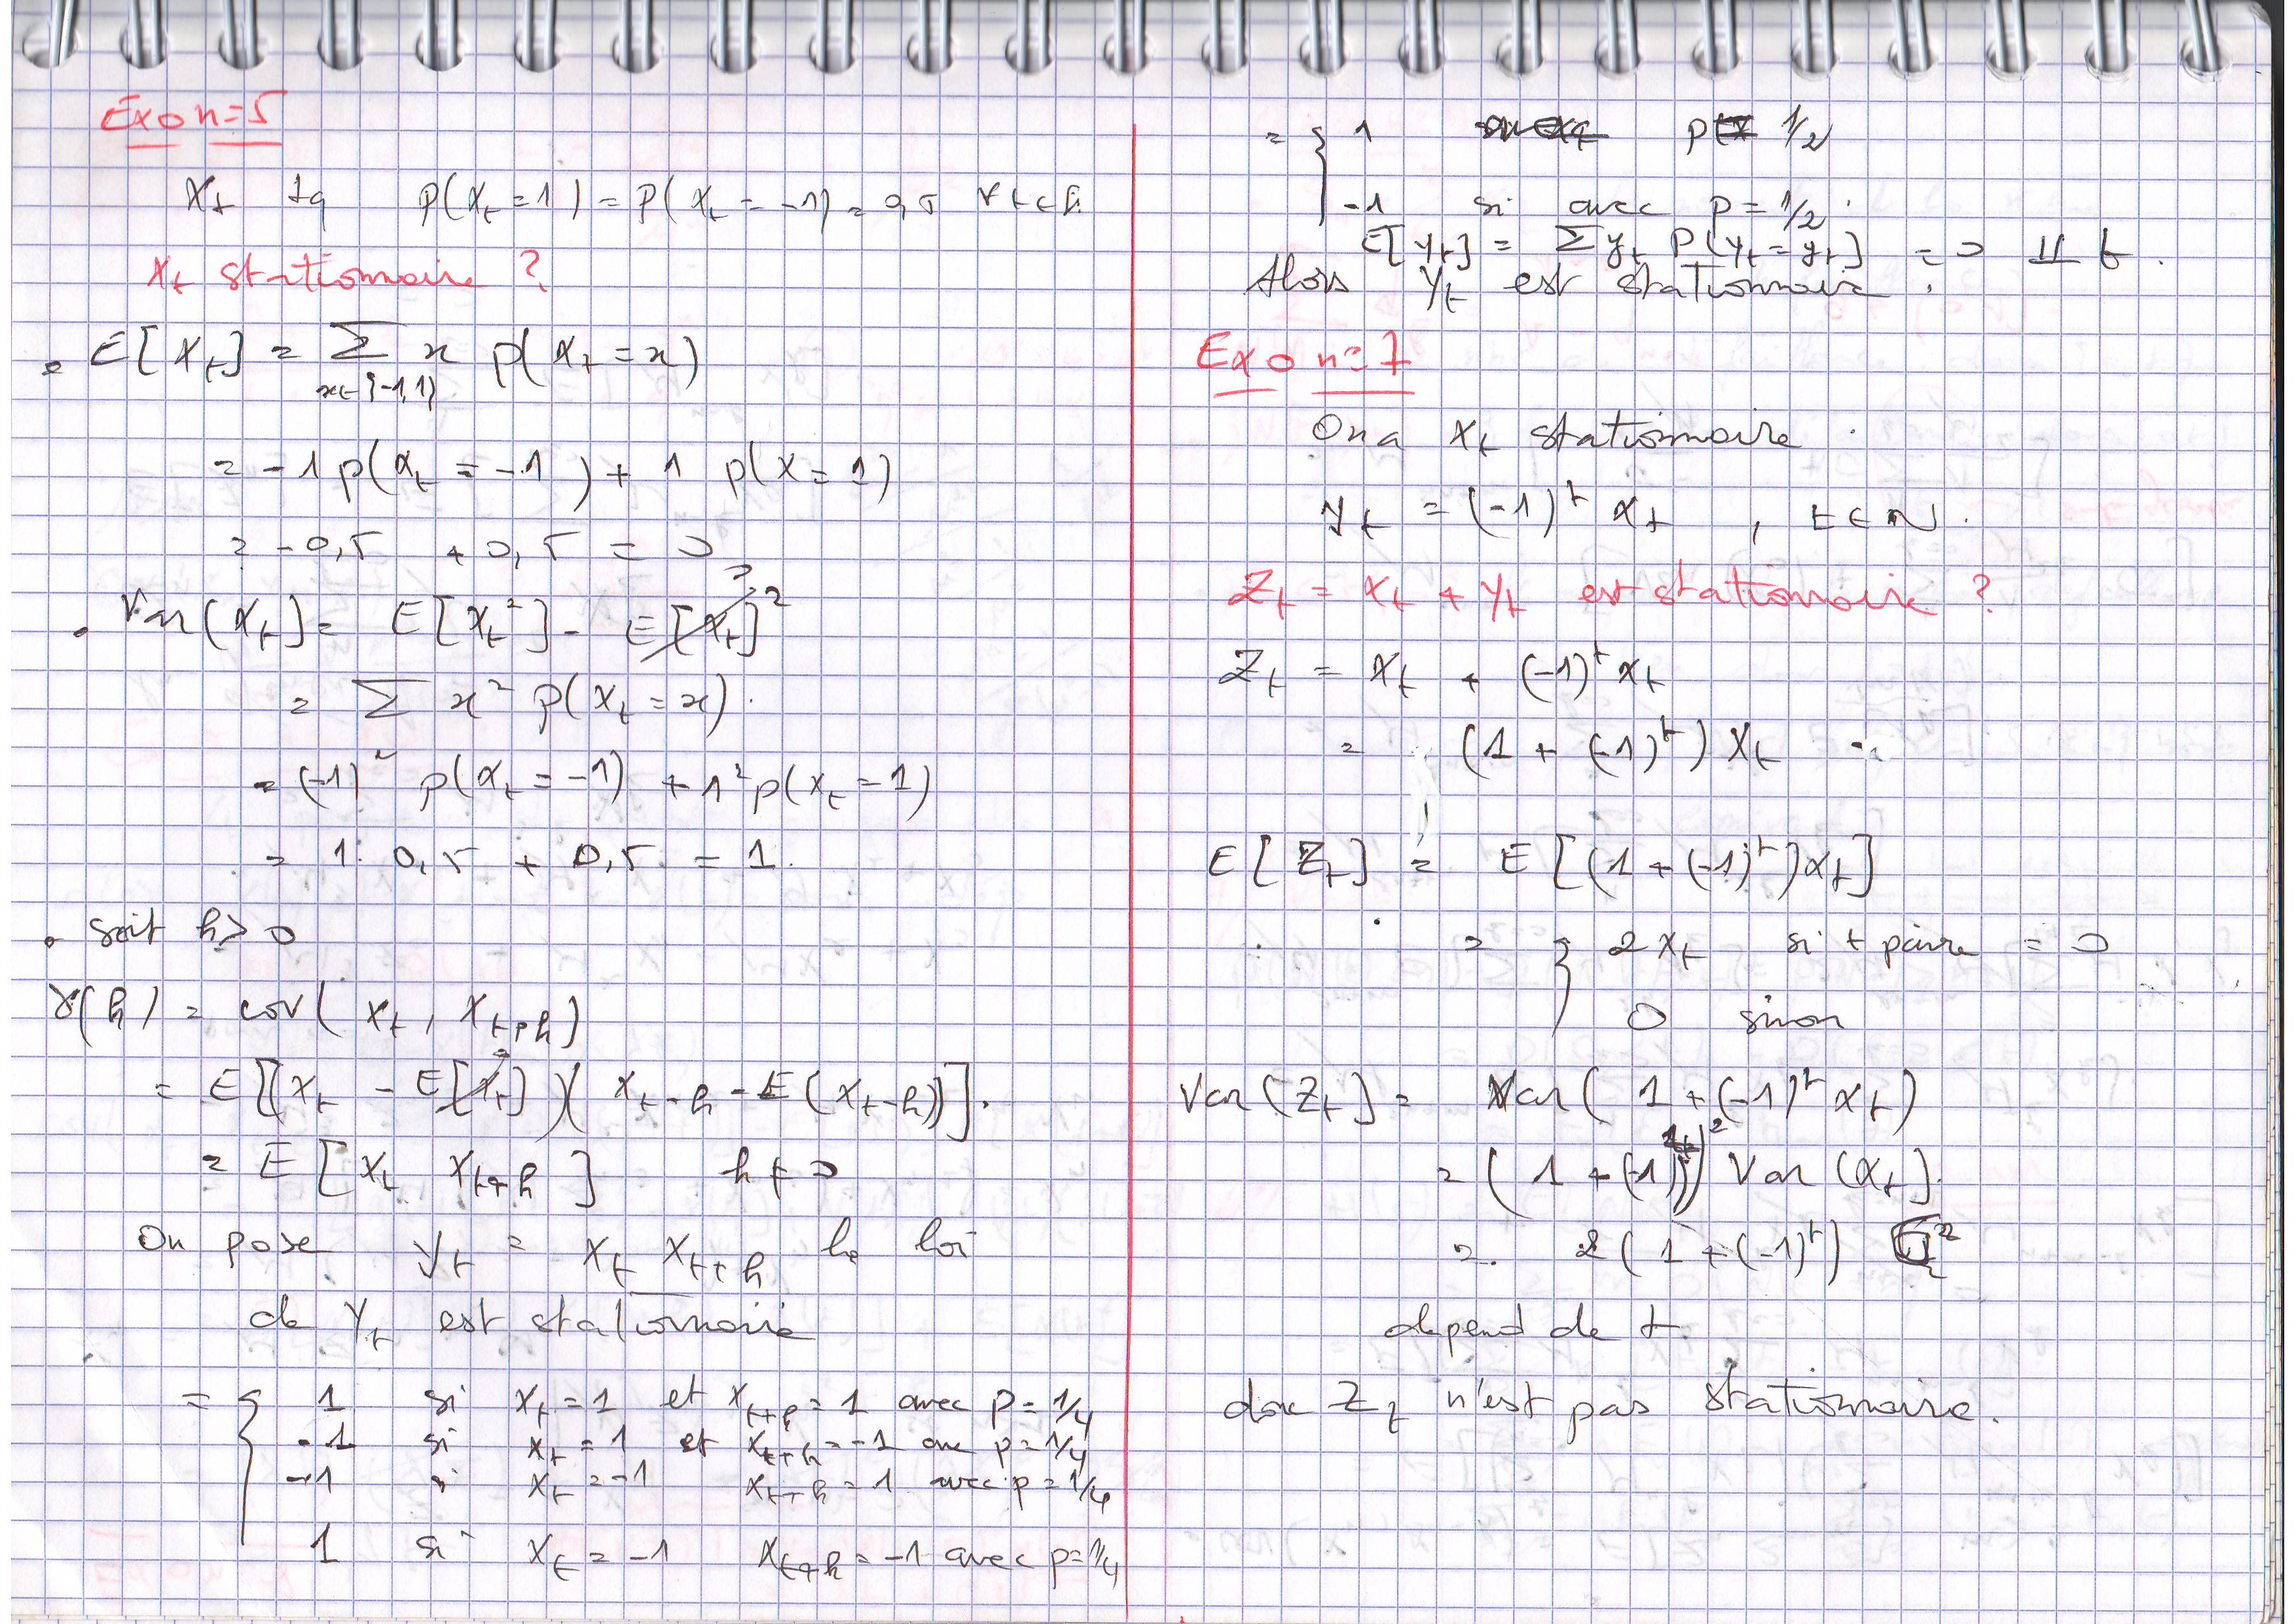 Exo n=5
X_t tq p(X_t = 1) = p(X_t = -1) = 0,5 ∀ t ∈
X_t stationnaire ?
E[X_t] = Σ_{x∈{-1,1}} x p(X_t = x)
= -1 p(X_t = -1) + 1 p(X = 1)
= -0,5 + 0,5 = 0
• Var(X_t) = E[X_t²] - E[X_t]² 0
= Σ x² p(X_t = x).
= (-1)² p(X_t = -1) + 1² p(X_t = 1)
= 1. 0,5 + 0,5 = 1.
• Soit h > 0
γ(h) = cov(X_t, X_{t+h})
= E[(X_t - E[X_t])(X_{t-h} - E(X_{t-h}))].
= E[X_t X_{t+h}] h ≠ 0
On pose Y_t = X_t X_{t+h} la loi
de Y_t est stationnaire
= { 1 si X_t = 1 et X_{t+h} = 1 avec p = 1/4
-1 si X_t = 1 et X_{t+h} = -1 avec p = 1/4
-1 si X_t = -1 X_{t+h} = 1 avec p = 1/4
1 si X_t = -1 X_{t+h} = -1 avec p = 1/4
= { 1 p = 1/2
-1 si avec p = 1/2.
E[Y_t] = Σ y_t P(Y_t = y_t) = 0 ⫫ t.
Alors Y_t est stationnaire.
Exo n=7
On a X_t stationnaire.
Y_t = (-1)^t X_t , t ∈ N.
Z_t = X_t + Y_t est stationnaire ?
Z_t = X_t + (-1)^t X_t
= (1 + (-1)^t) X_t
E[Z_t] = E[(1 + (-1)^t) X_t]
= { 2 X_t si t paire = 0
0 sinon
Var(Z_t) = Var(1 + (-1)^t X_t)
= (1 + (-1)^t)² Var(X_t).
= 2(1 + (-1)^t) σ²
depend de t
donc Z_t n'est pas stationnaire.